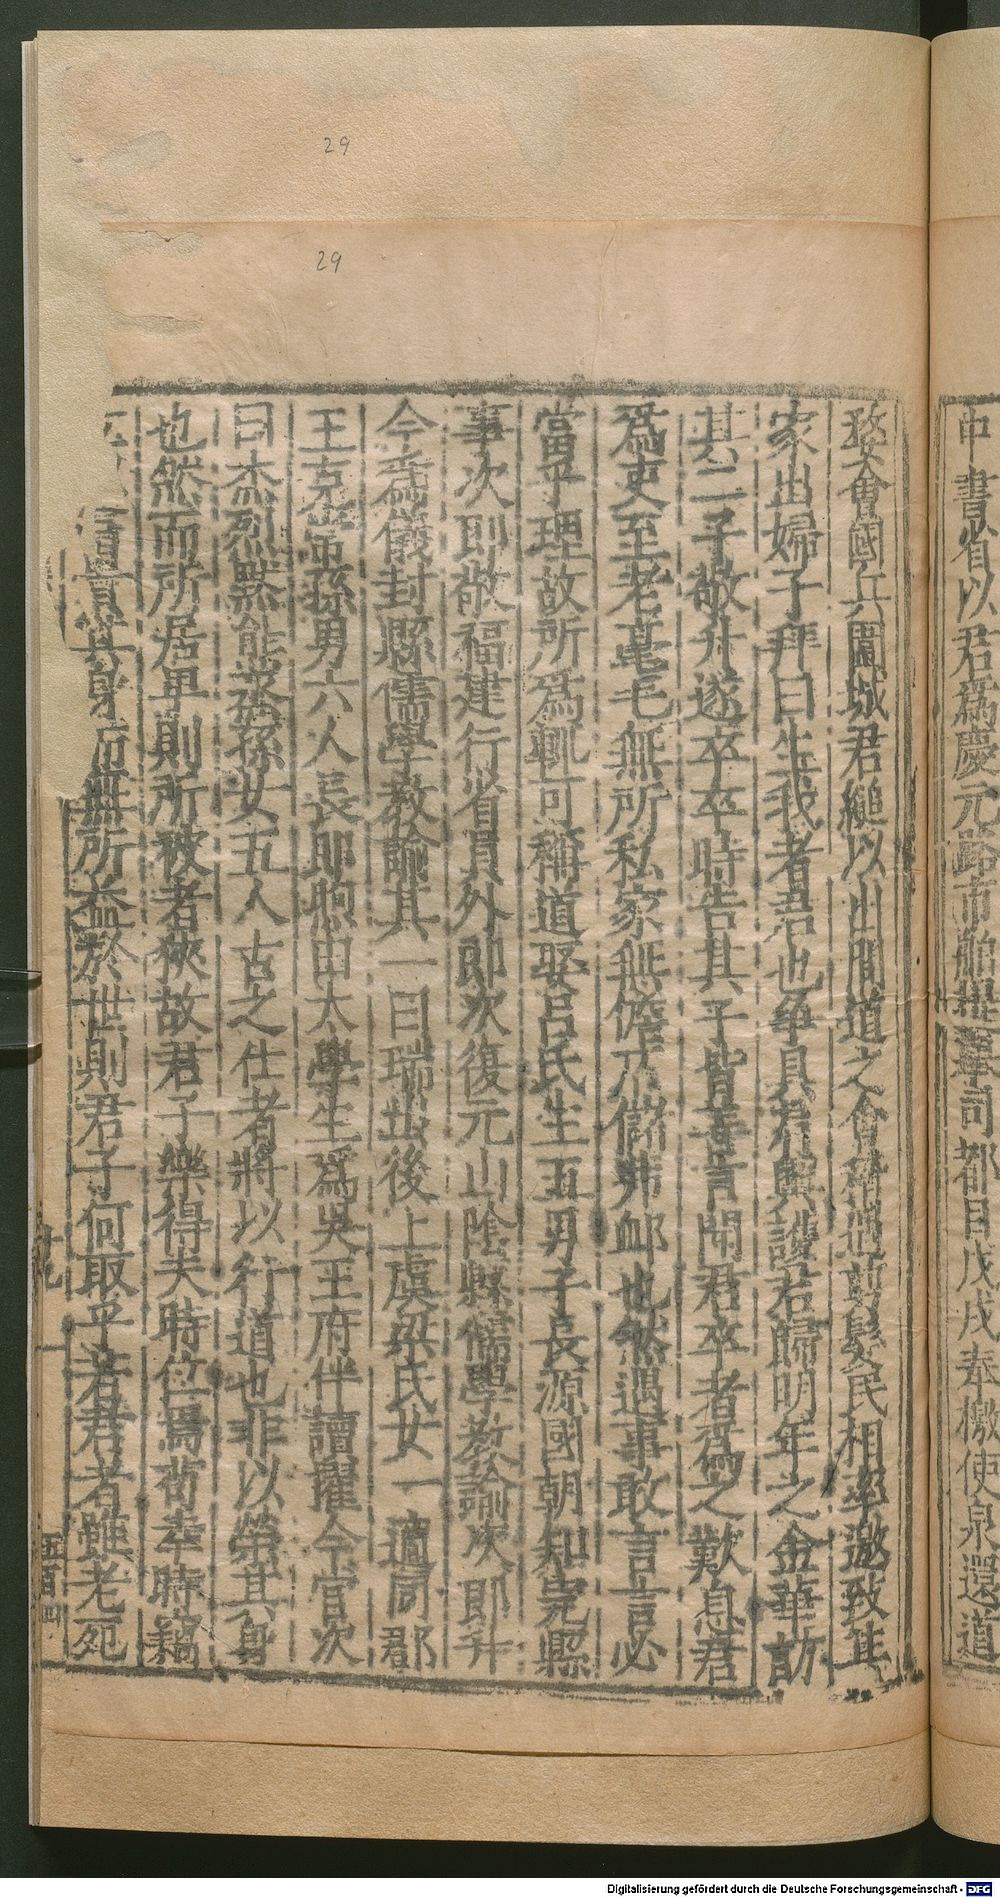 29
29
中書省以君爲慶元路市舶提舉司都目戊戌奉檄使泉還道
婺會國兵圍城君縋以出間道之會稽遇剪髮民相率邀致其
家出婦子拜曰生我者君也爭具君輿護君歸明年之金華訪
其二子敬升遂卒卒時告其子皆善言聞君卒者爲之歎息君
爲吏至老耄耄無所私家無儋石儲弗䘏也然遇事敢言言必
當乎理故所爲輒可稱道娶呂氏生五男子長源國朝知完縣
事次即敬福建行省員外郎次復元山陰縣儒學教諭次即升
今爲儀封縣儒學教諭其一曰瑞出後上虞梁氏女一適同郡
王克常孫男六人長即煦由太學生爲吳王府伴讀擢今官次
曰杰烈默能 孫女五人古之仕者將以行道也非以榮其身
也然而所居卑則所被者狹故君子樂得夫時位焉苟幸時竊
 其身而無所益於世則君子何取乎若君者雖老死
十九
五百四
Digitalisierung gefördert durch die Deutsche Forschungsgemeinschaft - DFG